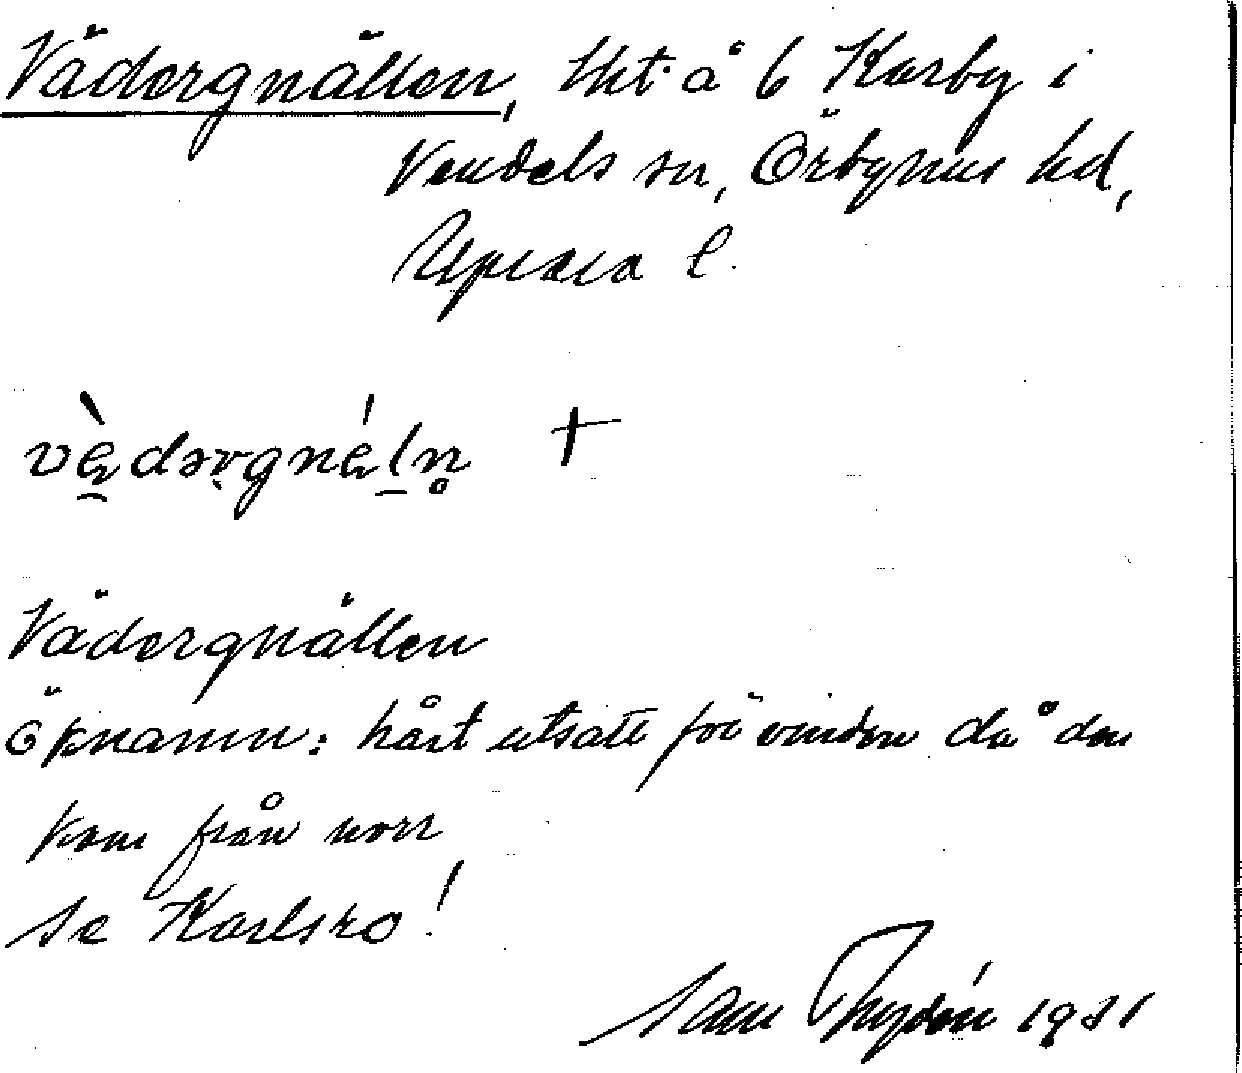 Vädergnällen, lht. å 6 Karby i
Vendels sn, Örbyhus hd,
Upsala l.
vèdərgnéln̥ +
Vädergnällen
öknamn: hårt utsatt för vinden då den
kom från norr
Se Karlsro!
Sam 1931